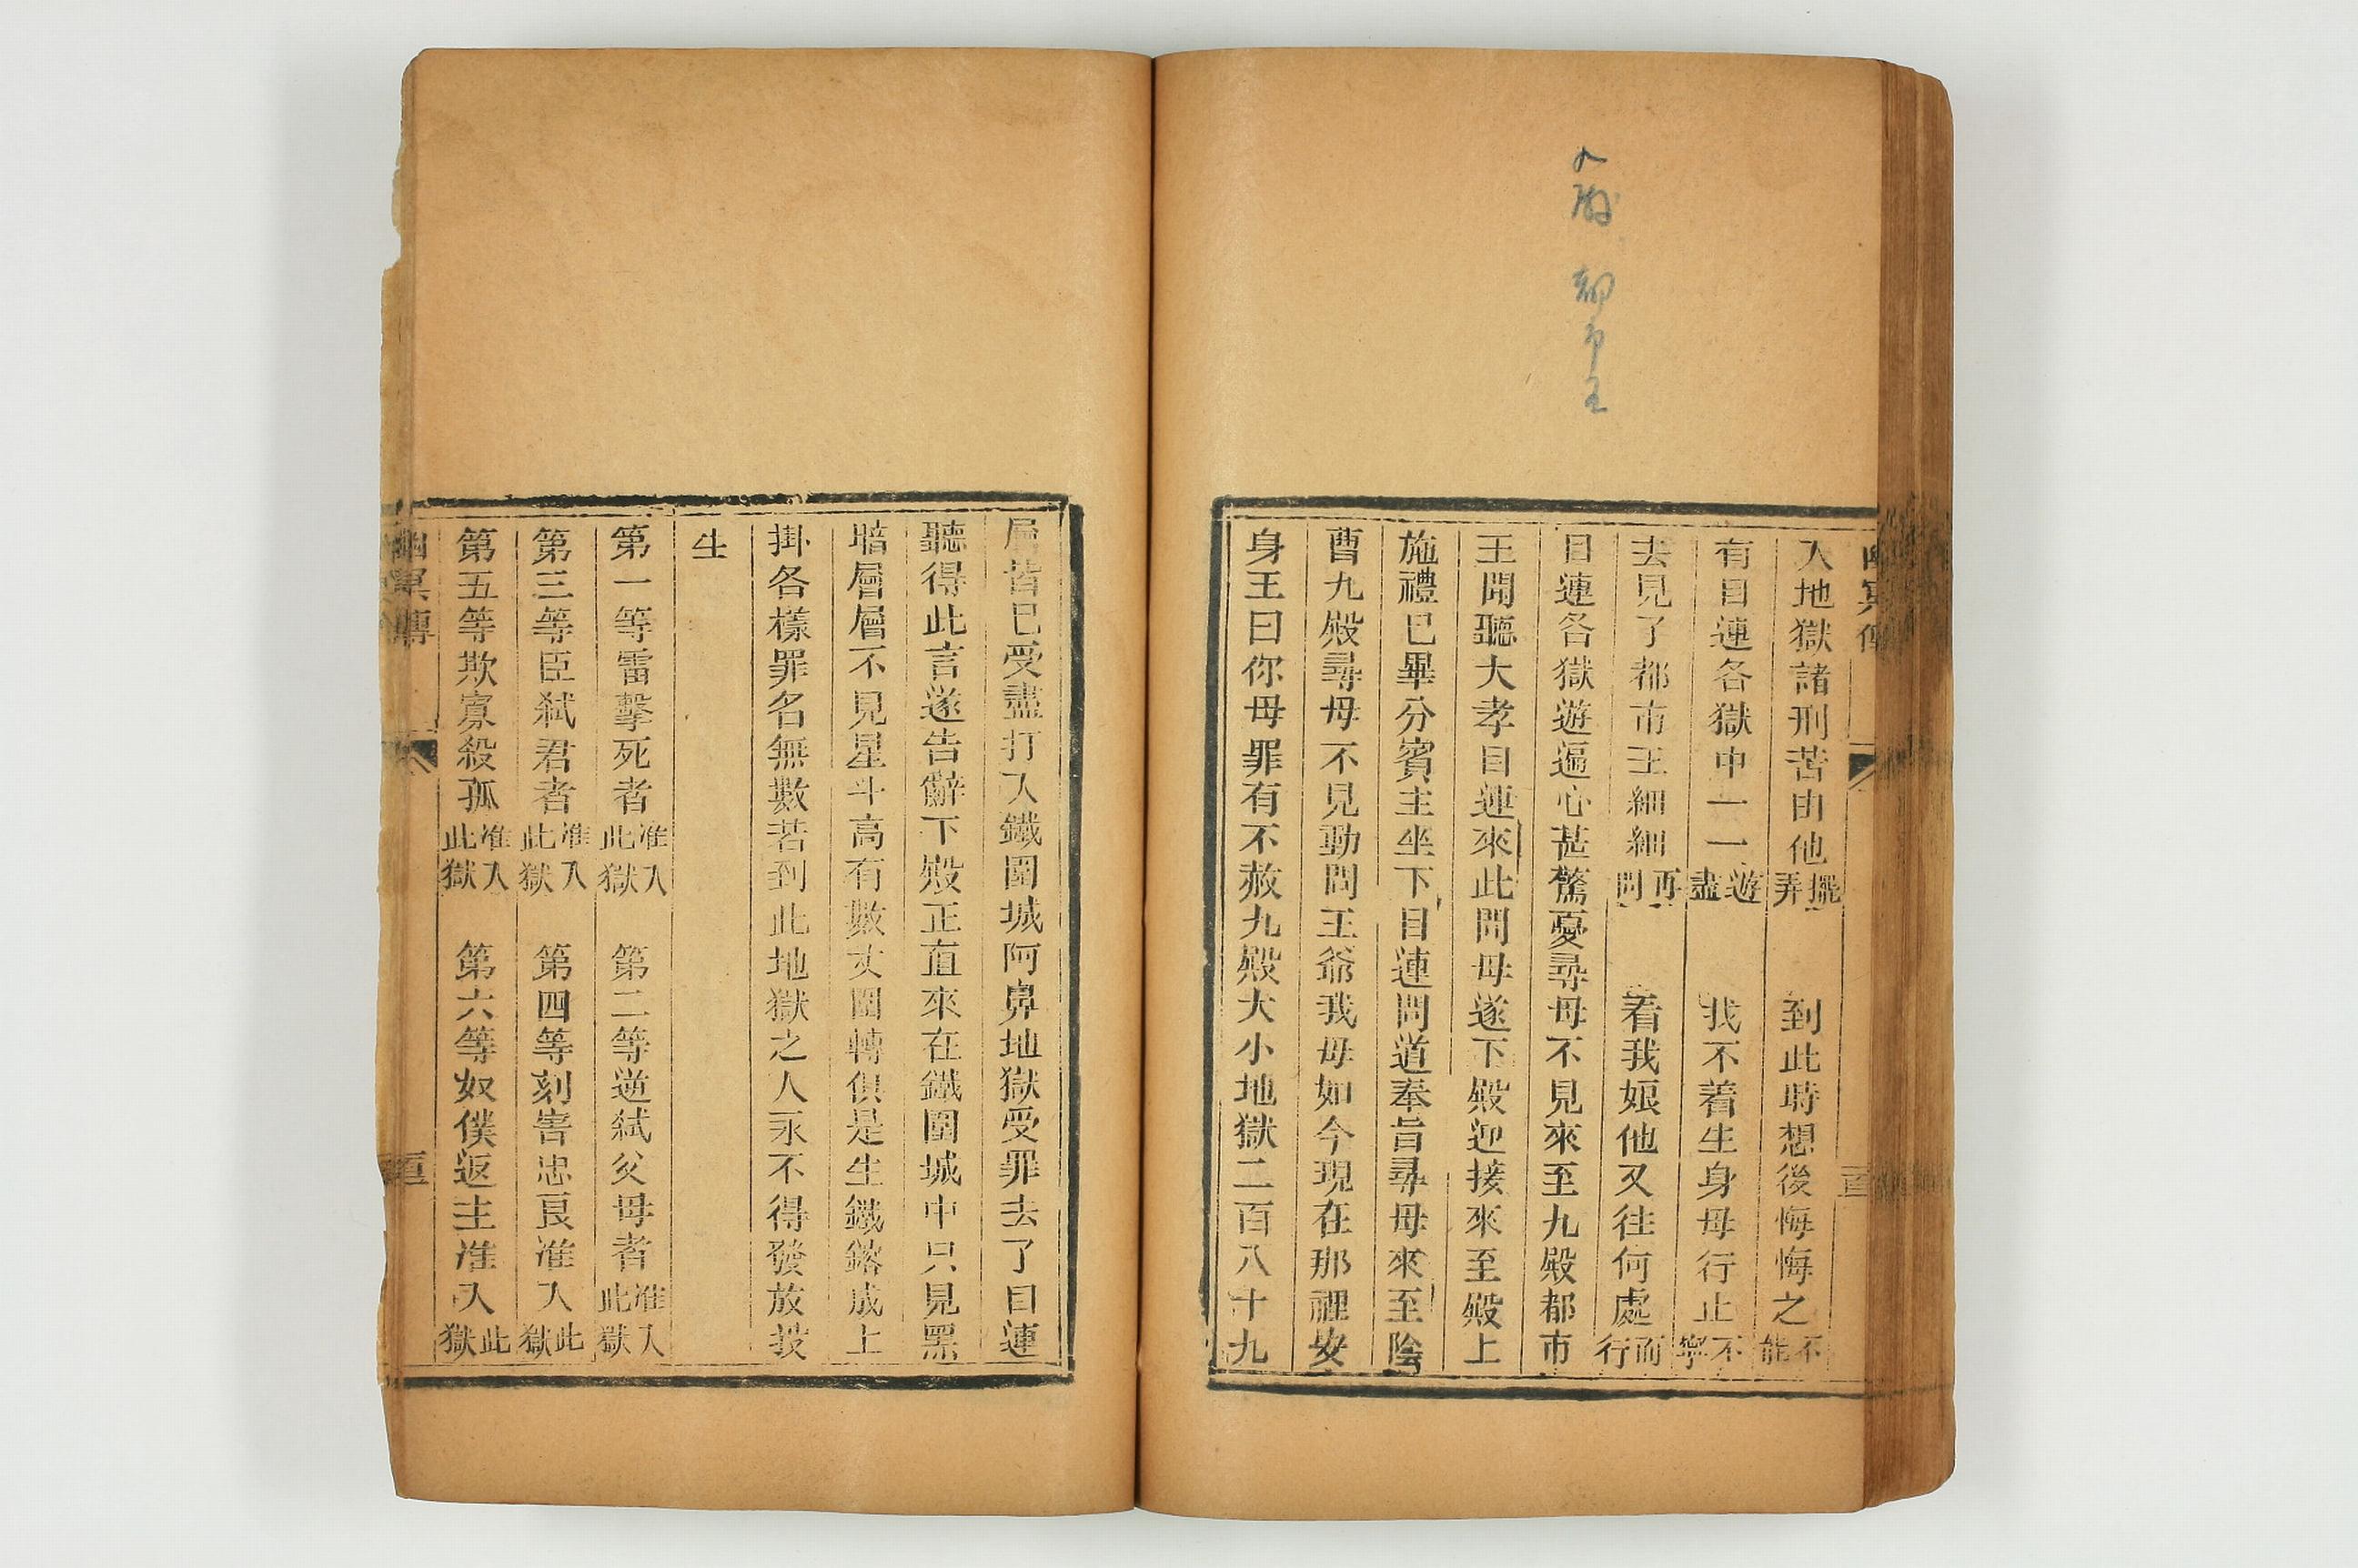 幽冥傳
入地獄諸刑苦由他擺弄　到此時想後悔悔之不能
有目連各獄中一一遊盡　我不着生身母行止不寧
去見了都市王細細再問　着我娘他又往何處而行
目連各獄遊遍心甚驚憂尋母不見來至九殿都市
王聞聽大孝目連來此問母遂下殿迎接來至殿上
施禮已畢分賓主坐下目連問道奉旨尋母來至陰
曹九殿尋母不見動問王爺我母如今現在那裡安
身王曰你母罪有不赦九殿大小地獄二百八十九
都市王
層皆已受盡打入鐵圍城阿鼻地獄受罪去了目連
聽得此言遂告辭下殿正直來在鐵圍城中只見黑
暗層層不見星斗高有數丈圍轉俱是生鐵鎔成上
掛各樣罪名無數若到此地獄之人永不得發放投
生
第一等雷擊死者准入此獄　第二等逆弒父母者准入此獄
第三等臣弒君者准入此獄　第四等刻害忠良准入此獄
第五等欺寡殺孤准入此獄　第六等奴僕返主准入此獄
幽冥傳